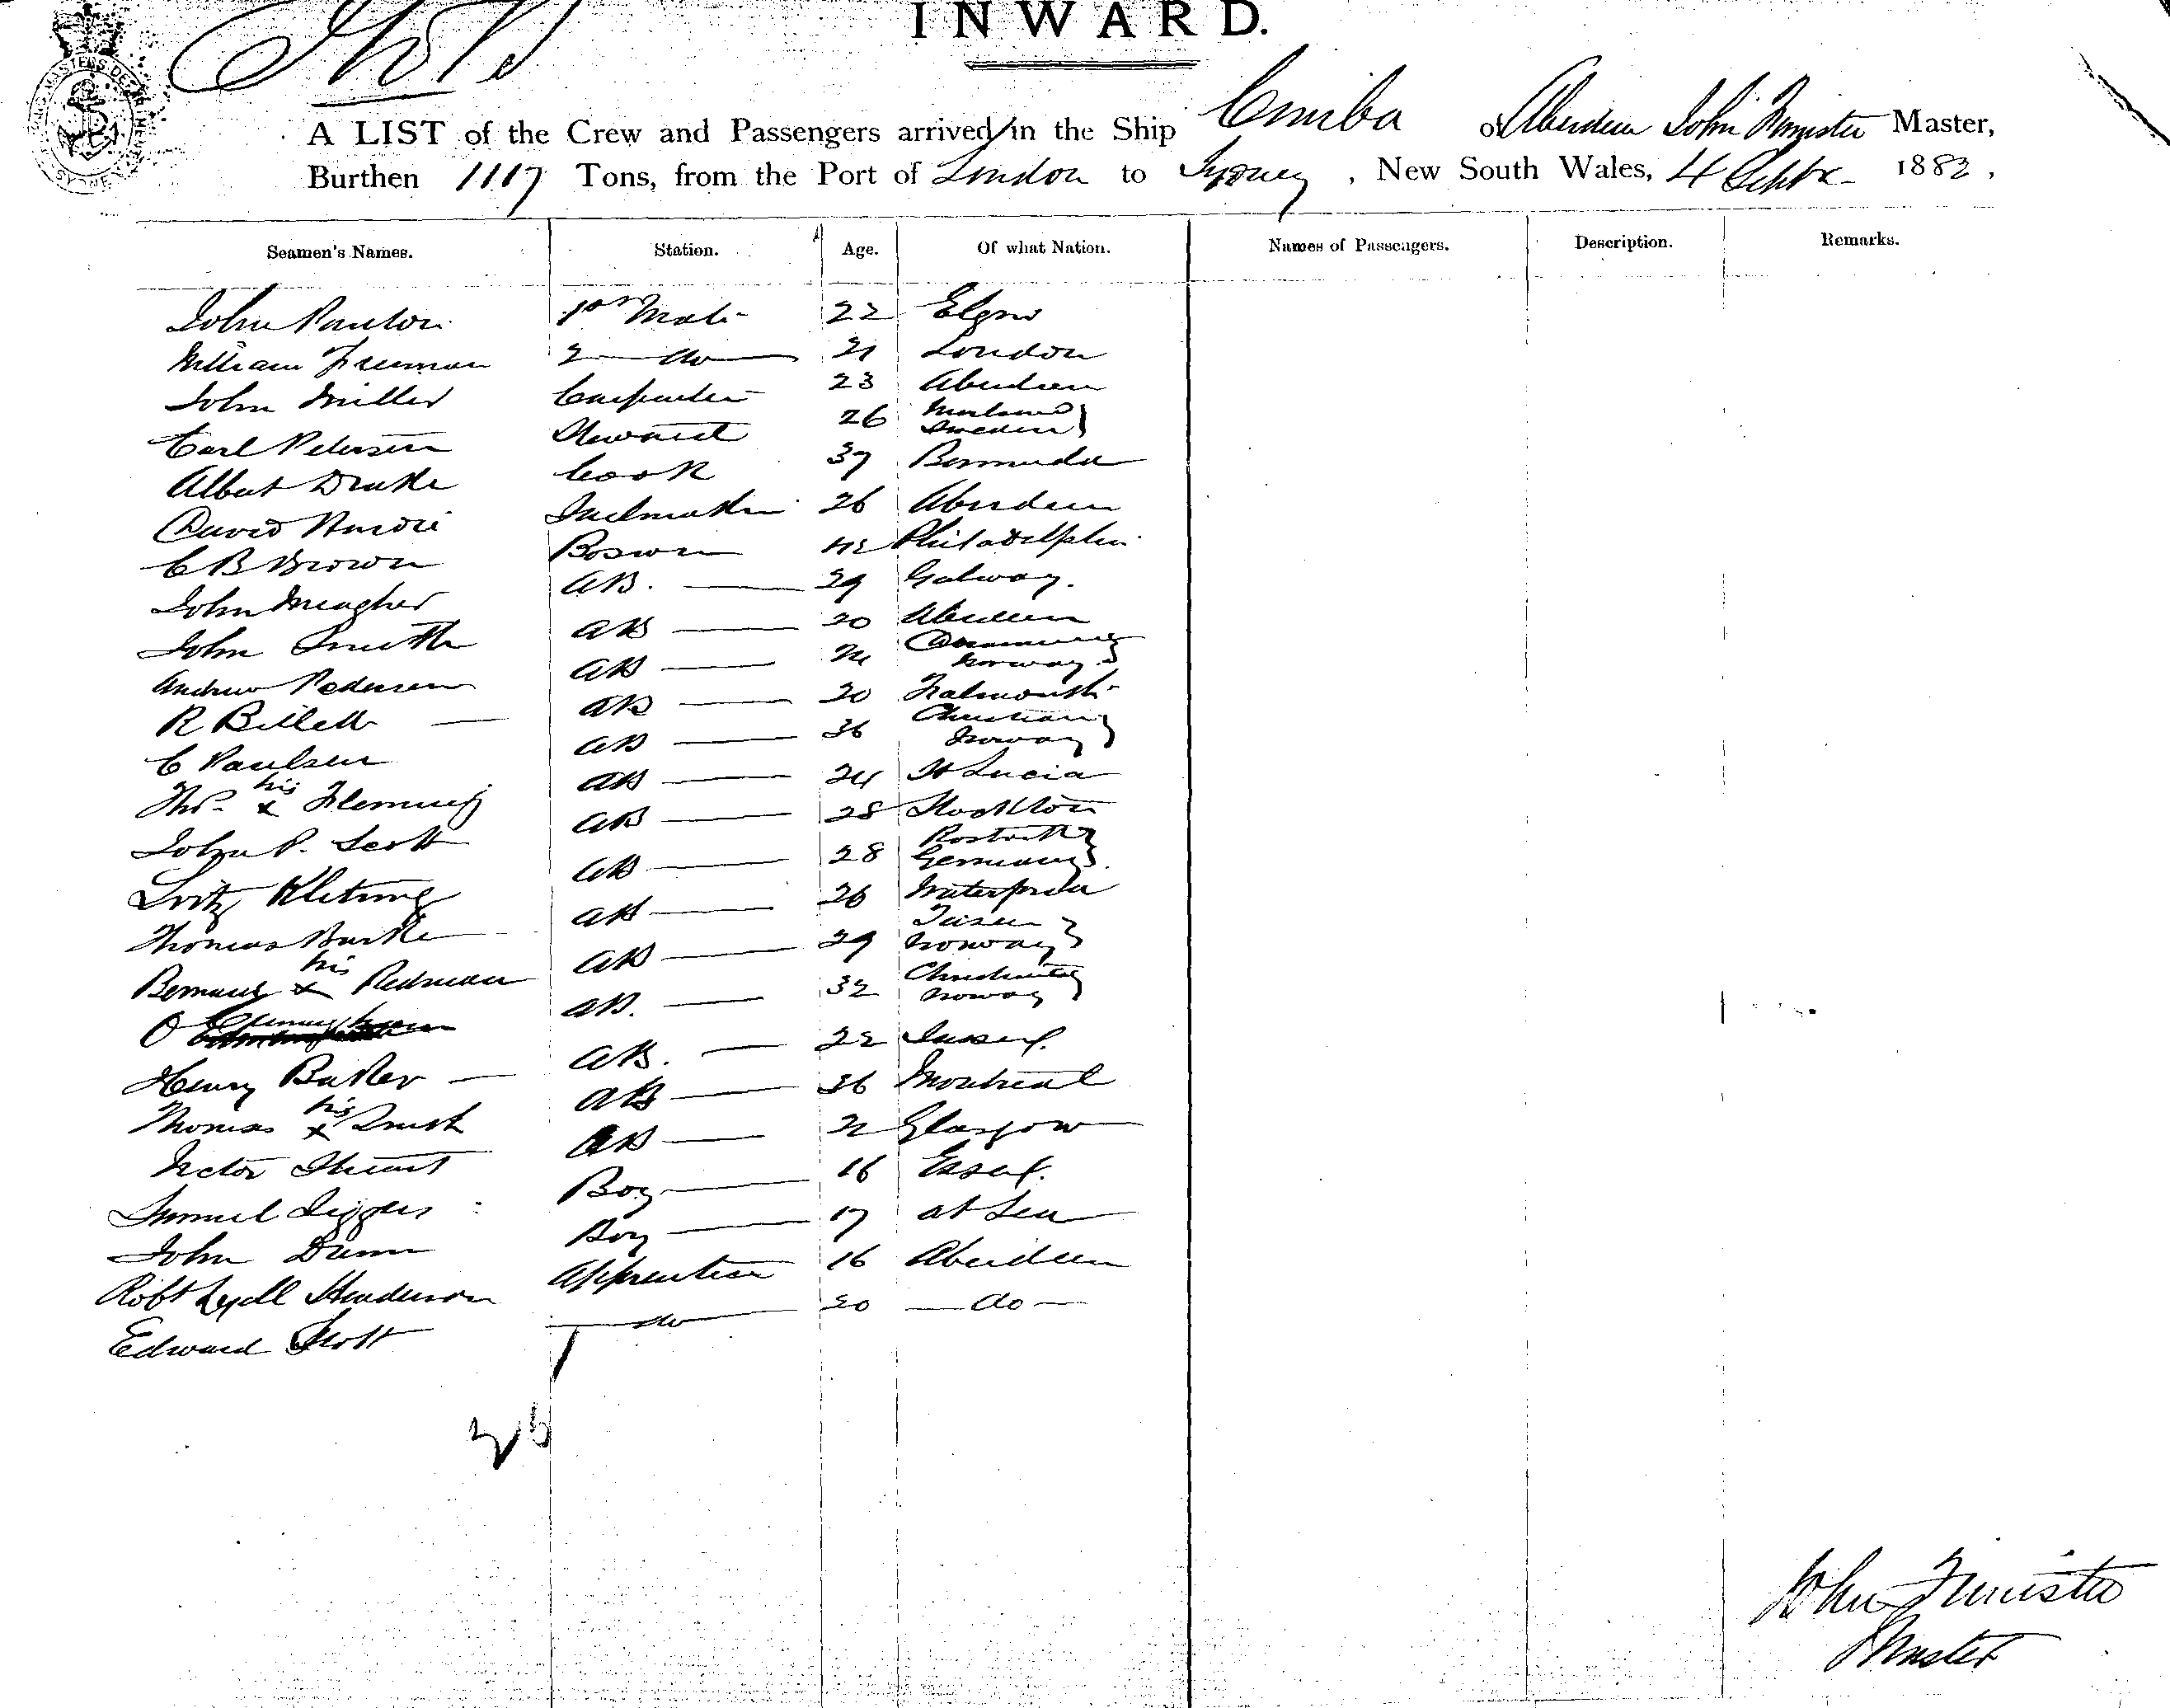 INWARD.
A LIST of the Crew and Passengers arrived in the Ship Cimba of Aberdeen John Master,
Burthen 1117 Tons, from the Port of London to Sydney, New South Wales, 4 Septr 1882,
Seamen's Names. Station. Age. Of what Nation. Names of Passengers. Description. Remarks.
John Panton 1st Mate 22 Elgin
William Freeman 2 do 21 London
John Miller Carpenter 23 Aberdeen
Carl Petersen Steward 26 Sweden
Albert Drake Cook 37 Bermuda
David Sailmaker 26 Aberdeen
C B Brown Boswn 42 Philadelphia
John Meagher AB. 29 Galway.
John Smith AB 20 Aberdeen
Andrew Pedersen AB Norway
R Billett AB 20 Falmouth
C Paulsen AB 36 Christiania Norway
Thos. his x Fleming AB 24 St Lucia
John P. Scott AB 28 Stockton
Fritz AB 28 Rostock Germany
Thomas Burke AB 26 Waterford
his x Redman AB 29 Norway
O AB. 32 Christiania Norway
Henry Baker AB. 22 Sussex.
Thomas his x Smith AB 36 Montreal
Victor Stuart AB 21 Glasgow
Samuel Diggles Boy 16 Essex.
John Dunn Boy 17 at Sea
Robt Lyall Henderson Apprentice 16 Aberdeen
Edward Scott do 20 do
25
John
Master